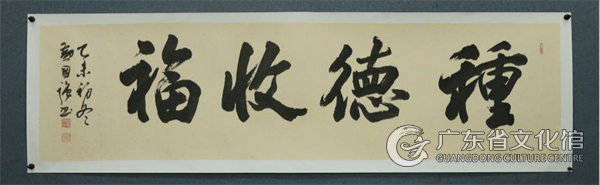 種德收福
乙未初冬
广东省文化馆
GUANGDONG CULTURE CENTRE